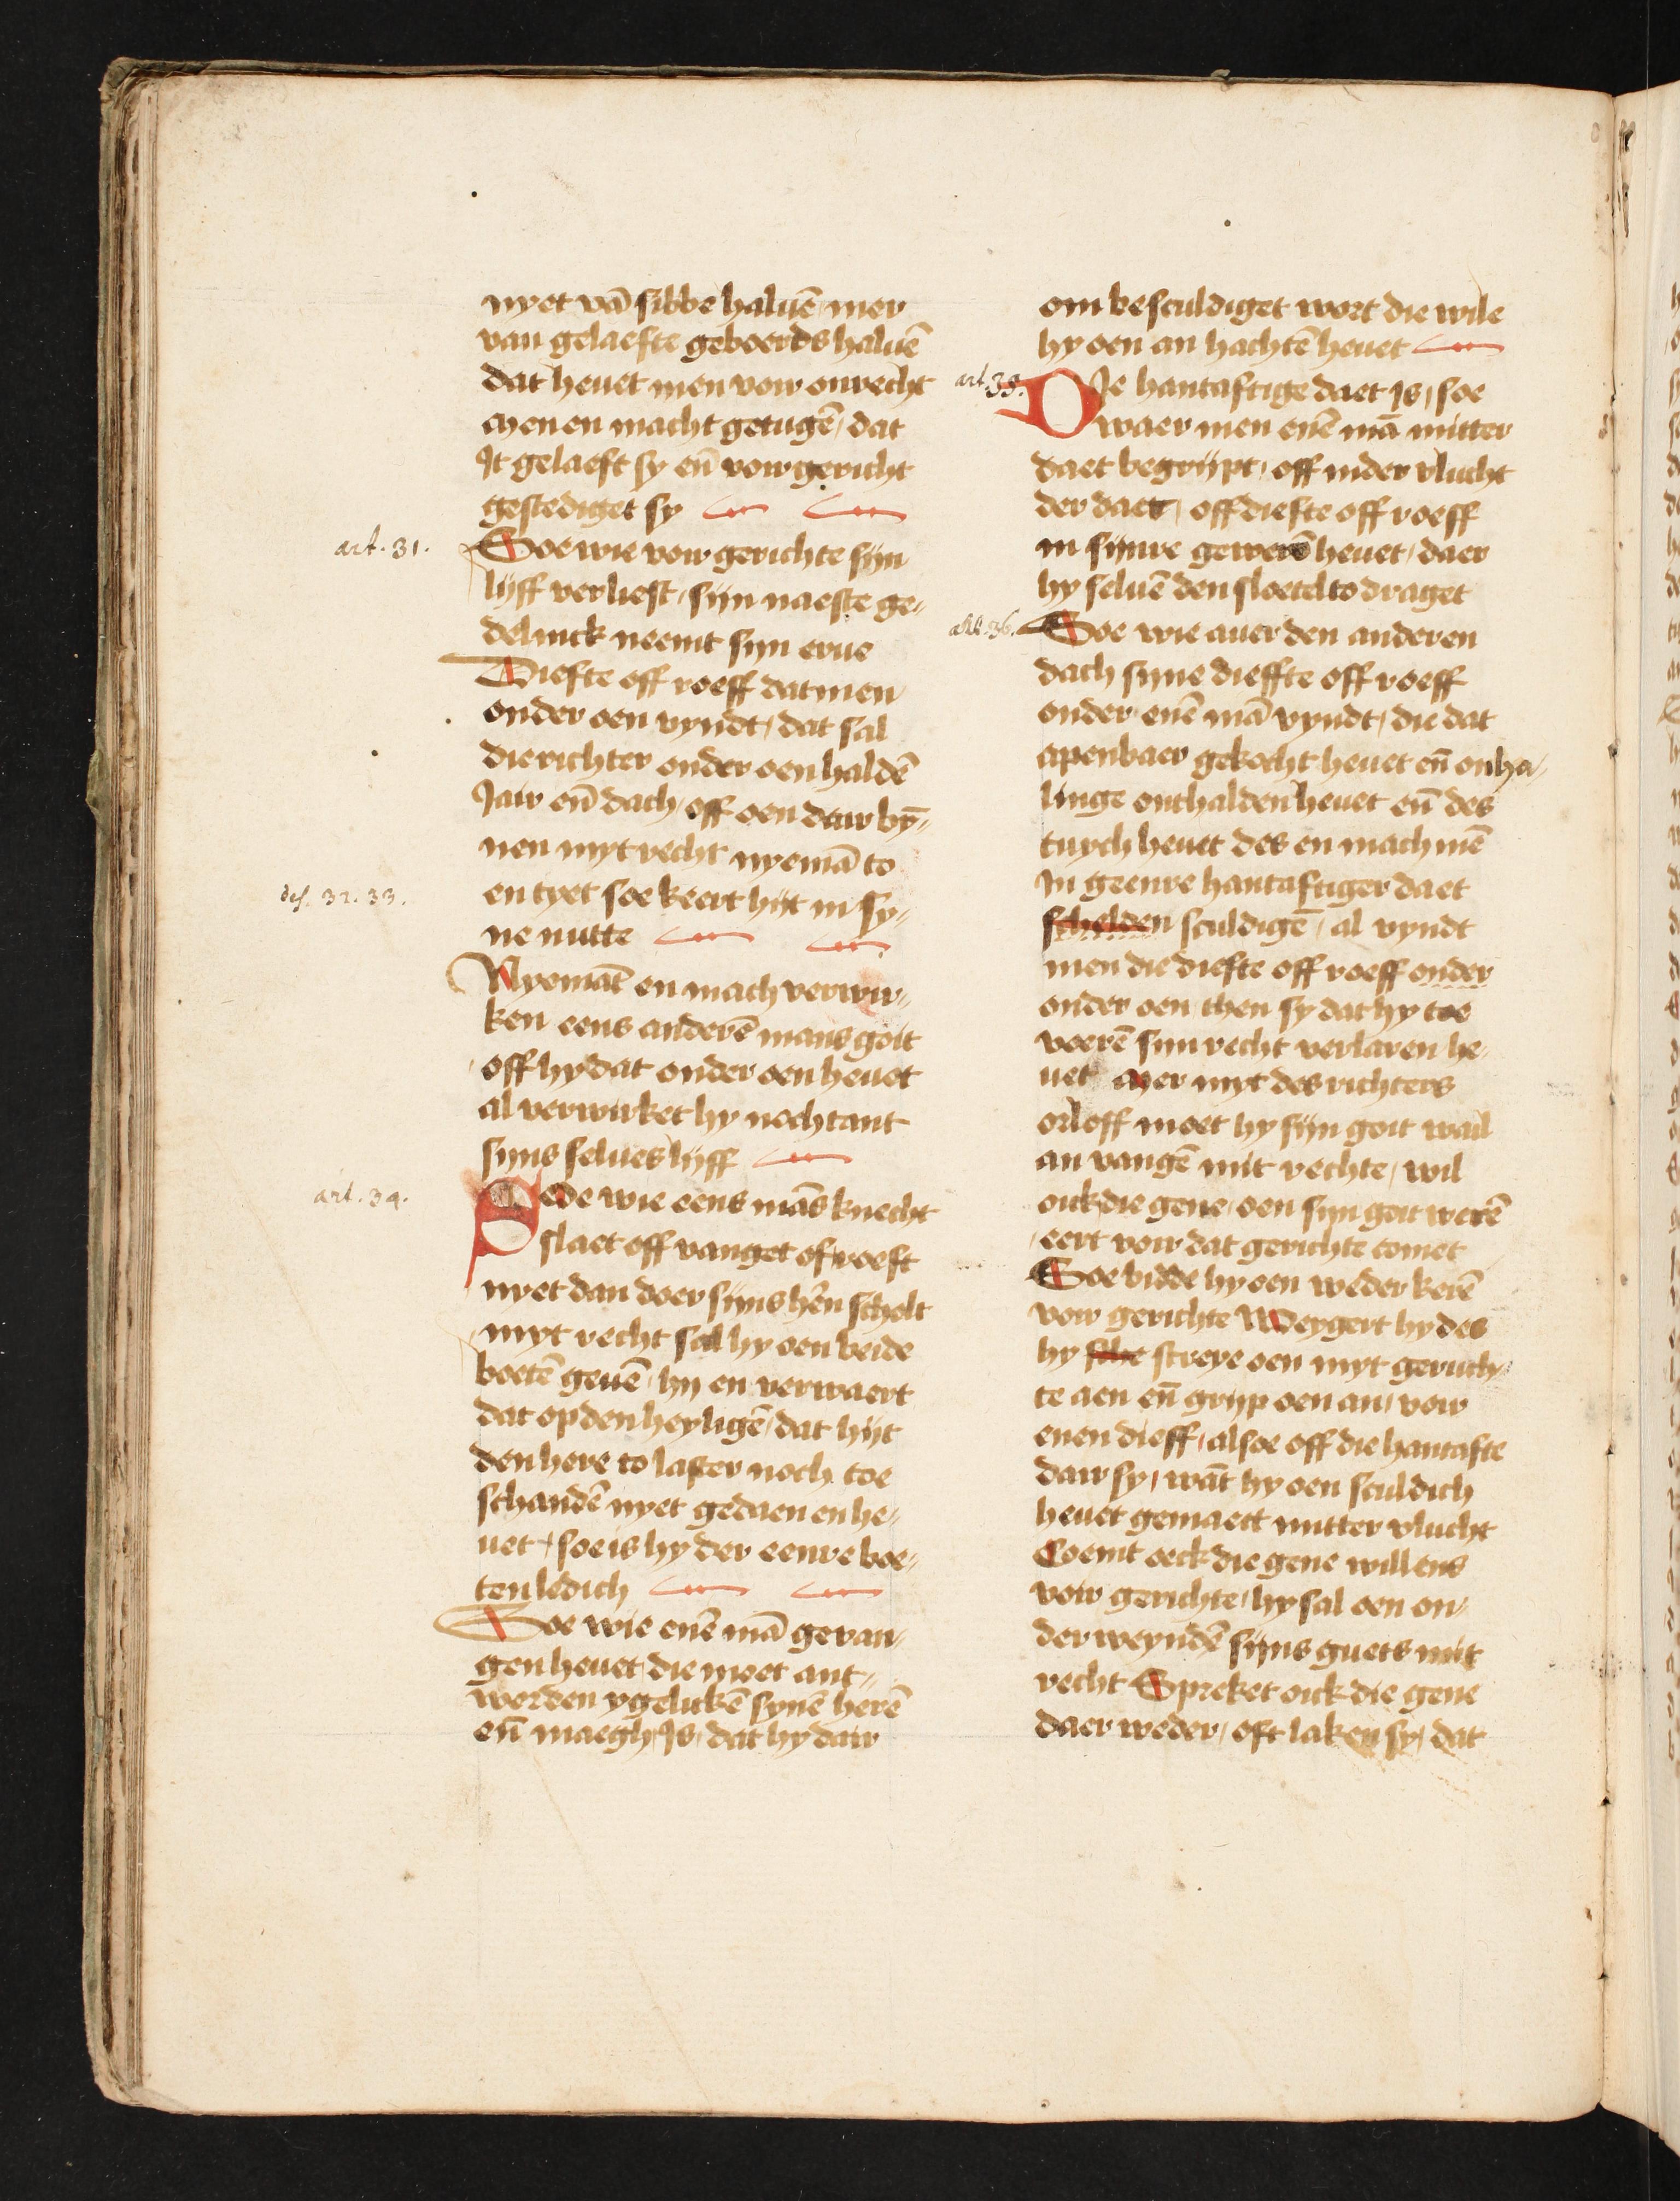 nyet vā sibbe haluē mer
van gelaefte geboerds haluē
dat heuet men voir onrecht
Men en macht getugē / dat
It gelaeft sy eñ voir gericht
gestediget sy
art. 31.
Soe wie voir gerichte sijn
lijff verliest / sijn naeste ge„
delinck neemt sijn erue
Diefte off roeff dat men
onder oen vyndt / dat sal
die richter onder oen haldē
Jair eñ dach / off oen dair bȳ„
nen myt recht nyemā to
des. 32. 33.
en tyet soe keert hijt in sy„
ne nutte
Nyemāt en mach verwir„
ken eens anderē mans goit
off hy dat onder oen heuet
al verwirket hy nochtant
sijns selues lijff
art. 34.
Soe wie eens mās knecht
slaet off vanget of roeft
nyet dan doer sijns hēn scholt
myt recht sal hy oen beide
boetē geuē / hij en verwaert
dat op den heyligē / dat hijt
den here to laster noch toe
schandē nyet gedaen en he„
uet / soe is hy der eenre boe„
ten ledich
Soe wie enē mā gevan„
gen heuet die moet ant„
worden ygelickē synē herē
eñ maegh / Is / dat hy dair
om besculdiget wort die wile
hy oen an hachtē heuet
art. 35.
DIe hantaftige daet is / soe
waer men enē mā mitter
daet begrijpt / off inder vlucht
der daet / off diefte off roeff
in sijnre gewerē heuet / daer
hy seluē den sloetel to draget
art. 36.
Soe wie auer den anderen
dach syne dieffte off roeff
onder enē mā vyndt / die dat
apenbaer gekocht heuet eñ onha„
linge onthalden heuet eñ des
tuych heuet des en mach mē
In geenre hantaftiger daet
schelden sculdigē / al vyndt
men die diefte off roeff onder
onder oen / then sy dat hy toe
voerē sijn recht verlaren he„
uet Mer myt des richters
orloff moet hy sijn goit wail
an vangē mit rechte / wil
oick die gene / oen sijn goit werē
eert voir dat gerichte comet
Soe bidde hy oen weder kerē
voir gerichte Weygert hy des
hy screye oen myt geruch„
te aen eñ grijp oen an / voir
enen dieff / alsoe off die hantafte
dair sy / wāt hy oen sculdich
heuet gemaect mitter vlucht
Coemt oeck die gene willens
voir gerichte / hy sal oen on„
der weyndē sijns guets mit
recht Spreket oick die gene
daer weder / oft laken sy / dat